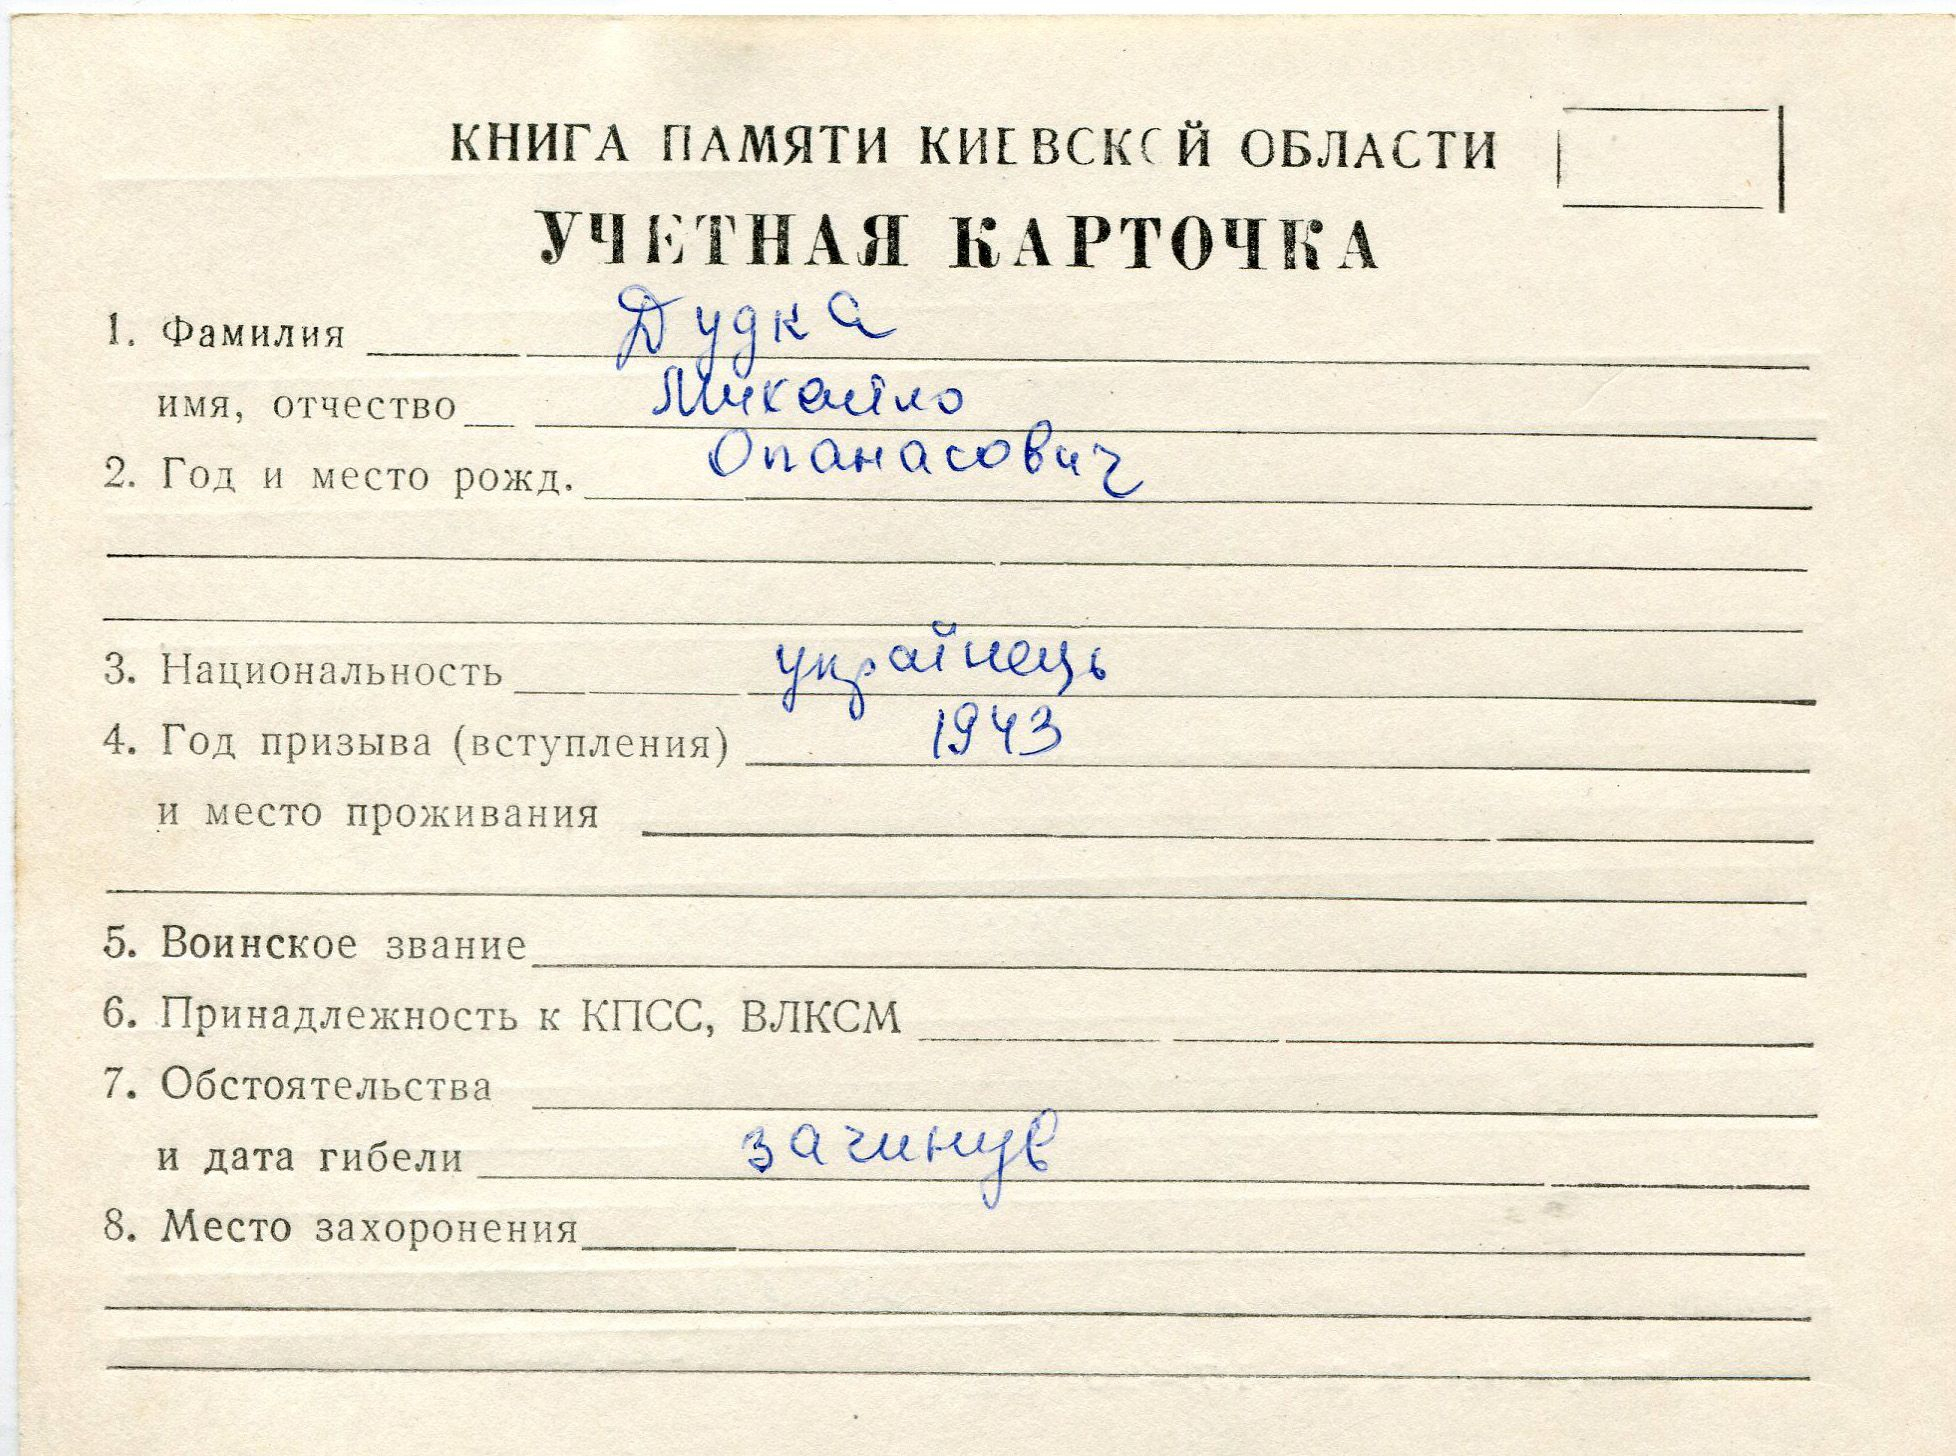 КНИГА ПАМЯТИ КИЕВСКОЙ ОБЛАСТИ
УЧЕТНАЯ КАРТОЧКА
1. Фамилия Дудка
имя, отчество Михайло
2. Год и место рожд. Опанасович
3. Национальность українець
4. Год призыва (вступления) 1943
и место проживания
5. Воинское звание
6. Принадлежность к КПСС, ВЛКСМ
7. Обстоятельства
и дата гибели загинув
8. Место захоронения